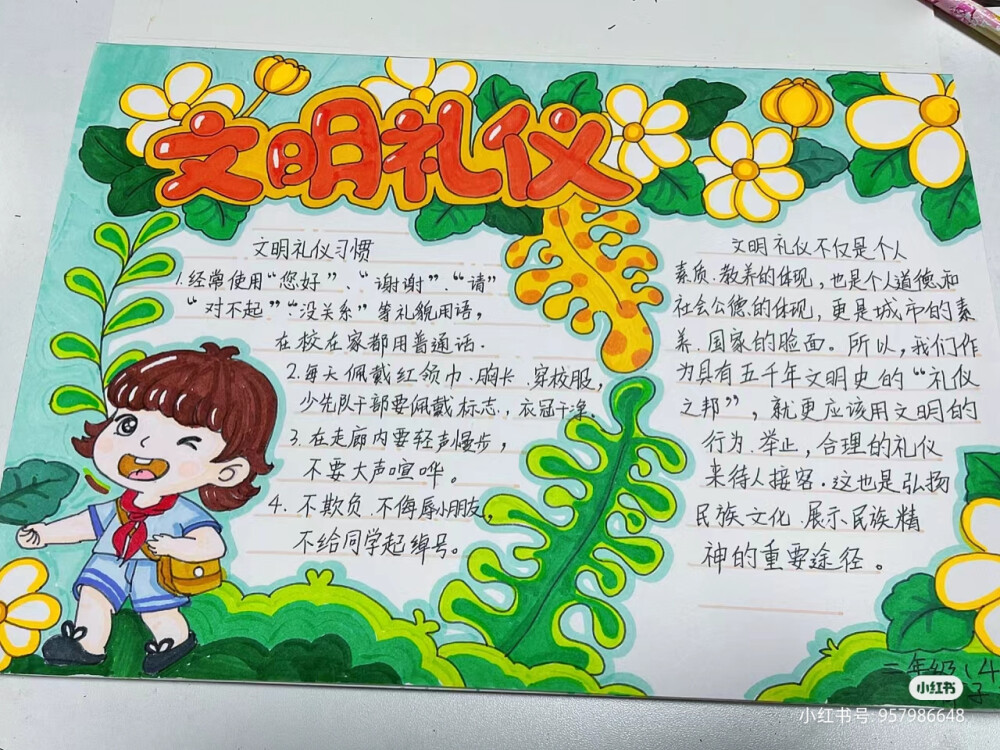 文明礼仪
文明礼仪习惯
1.经常使用“您好”、“谢谢”.“请”
“对不起”“没关系”等礼貌用语，
在校在家都用普通话.
2.每天佩戴红领巾.胸卡.穿校服，
少先队干部要佩戴标志.，衣冠干净、
3.在走廊内要轻声慢步，
不要大声喧哗。
4.不欺负.不侮辱小朋友，
不给同学起绰号。
文明礼仪不仅是个人
素质.教养的体现，也是个人道德.和
社会公德的体现，更是城市的素
养.国家的脸面。所以，我们作
为具有五千年文明史的“礼仪
之邦”，就更应该用文明的
行为.举止，合理的礼仪
来待人接客.这也是弘扬
民族文化.展示民族精
神的重要途径。
二年级（4
子
小红书
小红书号：957986648